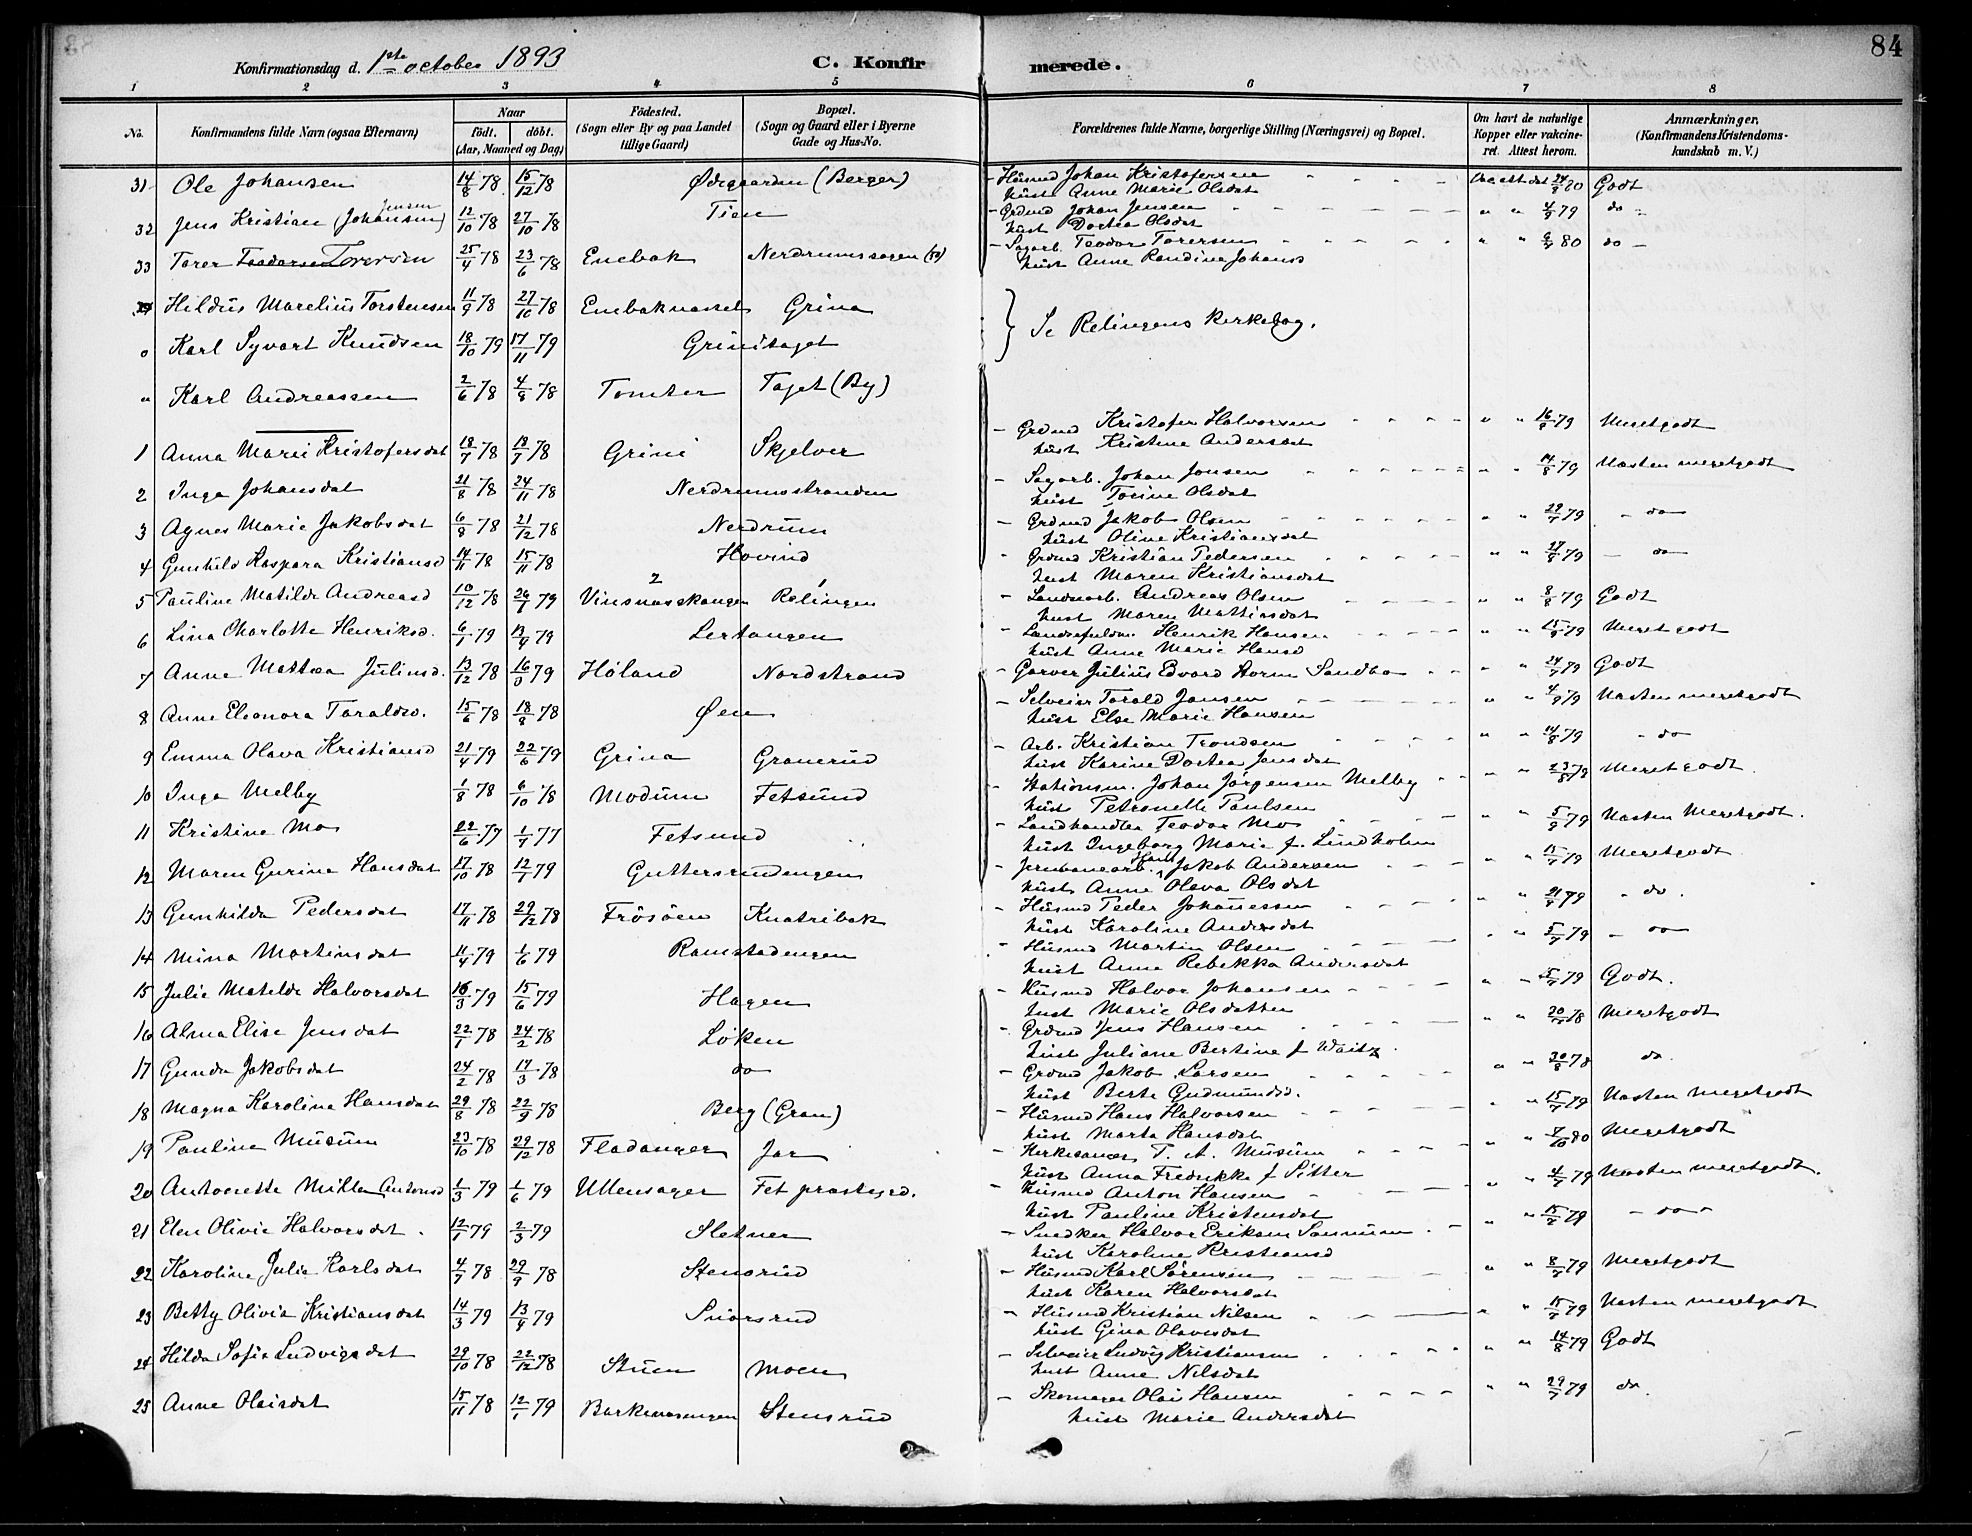 84
Konfirmationsdag d. 1ste october 1893 C. Konfirmerede.
1 2 3 4 5 6 7 8
No. Konfirmandens fulde Navn (ogsaa Efternavn) Naar födt. döbt. (Aar, Maaned og Dag) Födested. (Sogn eller By og paa Landet tillige Gaard) Bopæl. (Sogn og Gaard eller i Byerne Gade og Hus-No. Forældrenes fulde Navne, borgerlige Stilling (Næringsvei) og Bopæl. Om havt de naturlige Kopper eller vakcineret. Attest herom. Anmærkninger. (Konfirmandens Kristendomskundskab m. V.)
31 Ole Johansen 14/8 78 15/12 78 Ødegaarden (Berger) Husmd Johan Kristofersen 24/8 80 Godt
hust Anne Marie Olsdat
32 Jens Kristian (Johansen) Jensen 12/10 78 27/10 78 Tien Grdmd Johan Jensen " " 4/9 79 do
hust Dortea Olsdat
33 Torer Teodorsen Torersen 25/4 78 23/6 78 Enebak Nerdrumssagen Sagarb. Teodor Torersen " " 80 do
hust Anne Randine Johansd
Hildus Marelius Torstensen 11/9 78 27/10 78 Enebaknesset Grina } Se Relingens kirkebog.
Karl Syvart Knudsen 18/10 79 17/11 79 Grinitaget
" Karl Andreassen 2/6 78 4/8 78 Tomter Taget (By)
1 Anna Marie Kristofersdat 18/7 78 78 Grini Skjelver Grdmd Kristofer Halvorsen " " 16/9 79 Meretgodt
hust Kristine Andersdat
2 Inga Johansdat 21/8 78 24/11 78 Nerdrumsstranden Sagarb. Johan Jonsen " " 14/8 79 Næsten meretgodt
hust Torine Olsdat
3 Agnes Marie Jakobsdat 6/8 78 21/12 78 Nerdrum Grdmd Jakob Olsen " " 79 do
hust Oline Kristiansdat
4 Gunhild Kaspara Kristiansd 14/11 78 15/11 78 Hovind Grdmd Kristian Pedersen " " 79 do
hust Maren Kristiansdat
5 Pauline Matilde Andreasd 10/12 78 26/1 79 Vinsnesskangen 2 Relingen 1 Landarb. Andreas Olsen " " 8/8 79 Godt
hust Maren Mattiasdat
6 Lina Charlotte Henriksd. 6/1 79 79 Lertangen Henrik Hansen " " 79 Meretgodt
hust Anne Marie Hansd
7 Anne Mattea Juliusd. 13/12 78 79 Høland Nordstrand Garver Julius Edvard Storm Sandbo " " 79 Godt
8 Anne Eleonora Toraldsd. 15/6 78 18/8 78 Øen Selveier Torald Jansen " " 79 Næsten meretgodt
hust Else Marie Hansen
9 Emma Olava Kristiansd 21/4 79 22/6 79 Grina Granerud Arb. Kristian Trondsen " " 14/8 79 do
hust Karine Dortea Jensdat
10 Inga Melby 1/8 78 6/10 78 Modum Fetsund Stationsm. Johan Jörgensen Melby " " Meretgodt
hust Petronelle Paulsen
11 Kristine Mo 22/6 77 1/7 77 Fetsund Landhandler Teodor Mo " " 5/9 79 Næsten Meretgodt.
hust Ingeborg Marie f. Lindholm
12 Maren Gurine Hansdat 17/10 78 12/1 79 Guttersrudengen Jernbanearb. Hans Jakob Andersen " " 79 Meretgodt
hust Anne Olava Olsdat
13 Gunhilda Pedersdat 17/11 78 29/12 78 Frösöen Knatribak Husmd Peder Johannessen " " 79 do.
hust Karoline Andersdat
14 Mina Martinsdat 11/4 79 1/6 79 Ramstadengen Husmd Martin Olsen " " 5/7 79 do
hust Anne Rebekka Andersdat
15 Julie Matilde Halvorsdat 16/3 79 15/6 79 Hagen Husmd Halvor Johansen " 79 Godt.
hust Marie Olsdatter
16 Alma Elise Jensdat 22/1 78 24/2 78 Løken Grdmd Jens Hansen " " 78 Meretgodt
hust Juliane Bertine f Waitz
17 Gunda Jakobsdat 24/2 78 17/3 78 do Grdmd Jakob Larsen " " 78 do.
hust Berte Gudmundsd.
18 Magna Karoline Hansdat 29/8 78 22/9 78 Berg (Gran) Husmd Hans Halvorsen " " 15/7 79 Næsten meretgodt
hust Marta Hansdat
19 Pauline Musum 23/10 78 29/12 78 Fladanger Jar Kirkesanger T. A. Musum " " 80 Meretgodt
hust Anna Fredrikke f Sitter
20 Antonette Mille Antonsd 1/3 79 1/6 79 Ullensager Fet prestegrd. Husmd Anton Hansen " " 79 Næsten meretgodt.
hust Pauline Kristensdat
21 Elen Olivie Halvorsdat 12/1 79 2/3 79 Sletner Snedker Halvor Eriksen " " 79 do
hust Karoline Kristiansd
22 Karoline Julie Karlsdat 4/7 78 29/9 78 Stensrud Husmd Karl Sörensen " " 79 Meretgodt
hust Karen Halvorsdat
23 Betty Olivia Kristiansdat 14/3 79 13/4 79 Snorsrud Husmd Kristian Nilsen " " 79 Næsten meretgodt
hust Gina Olavesdat
24 Hilda Sofie Ludvigsdat 29/10 78 22/12 78 Stuen Moen Selveier Ludvig Kristiansen " " 14/8 79 Godt
hust Anne Nilsdat
25 Anne Olaisdat 15/11 78 12/1 79 Stensrud Skomager Olai Hansen " " 29/7 79 do.
hust Marie Andersdat